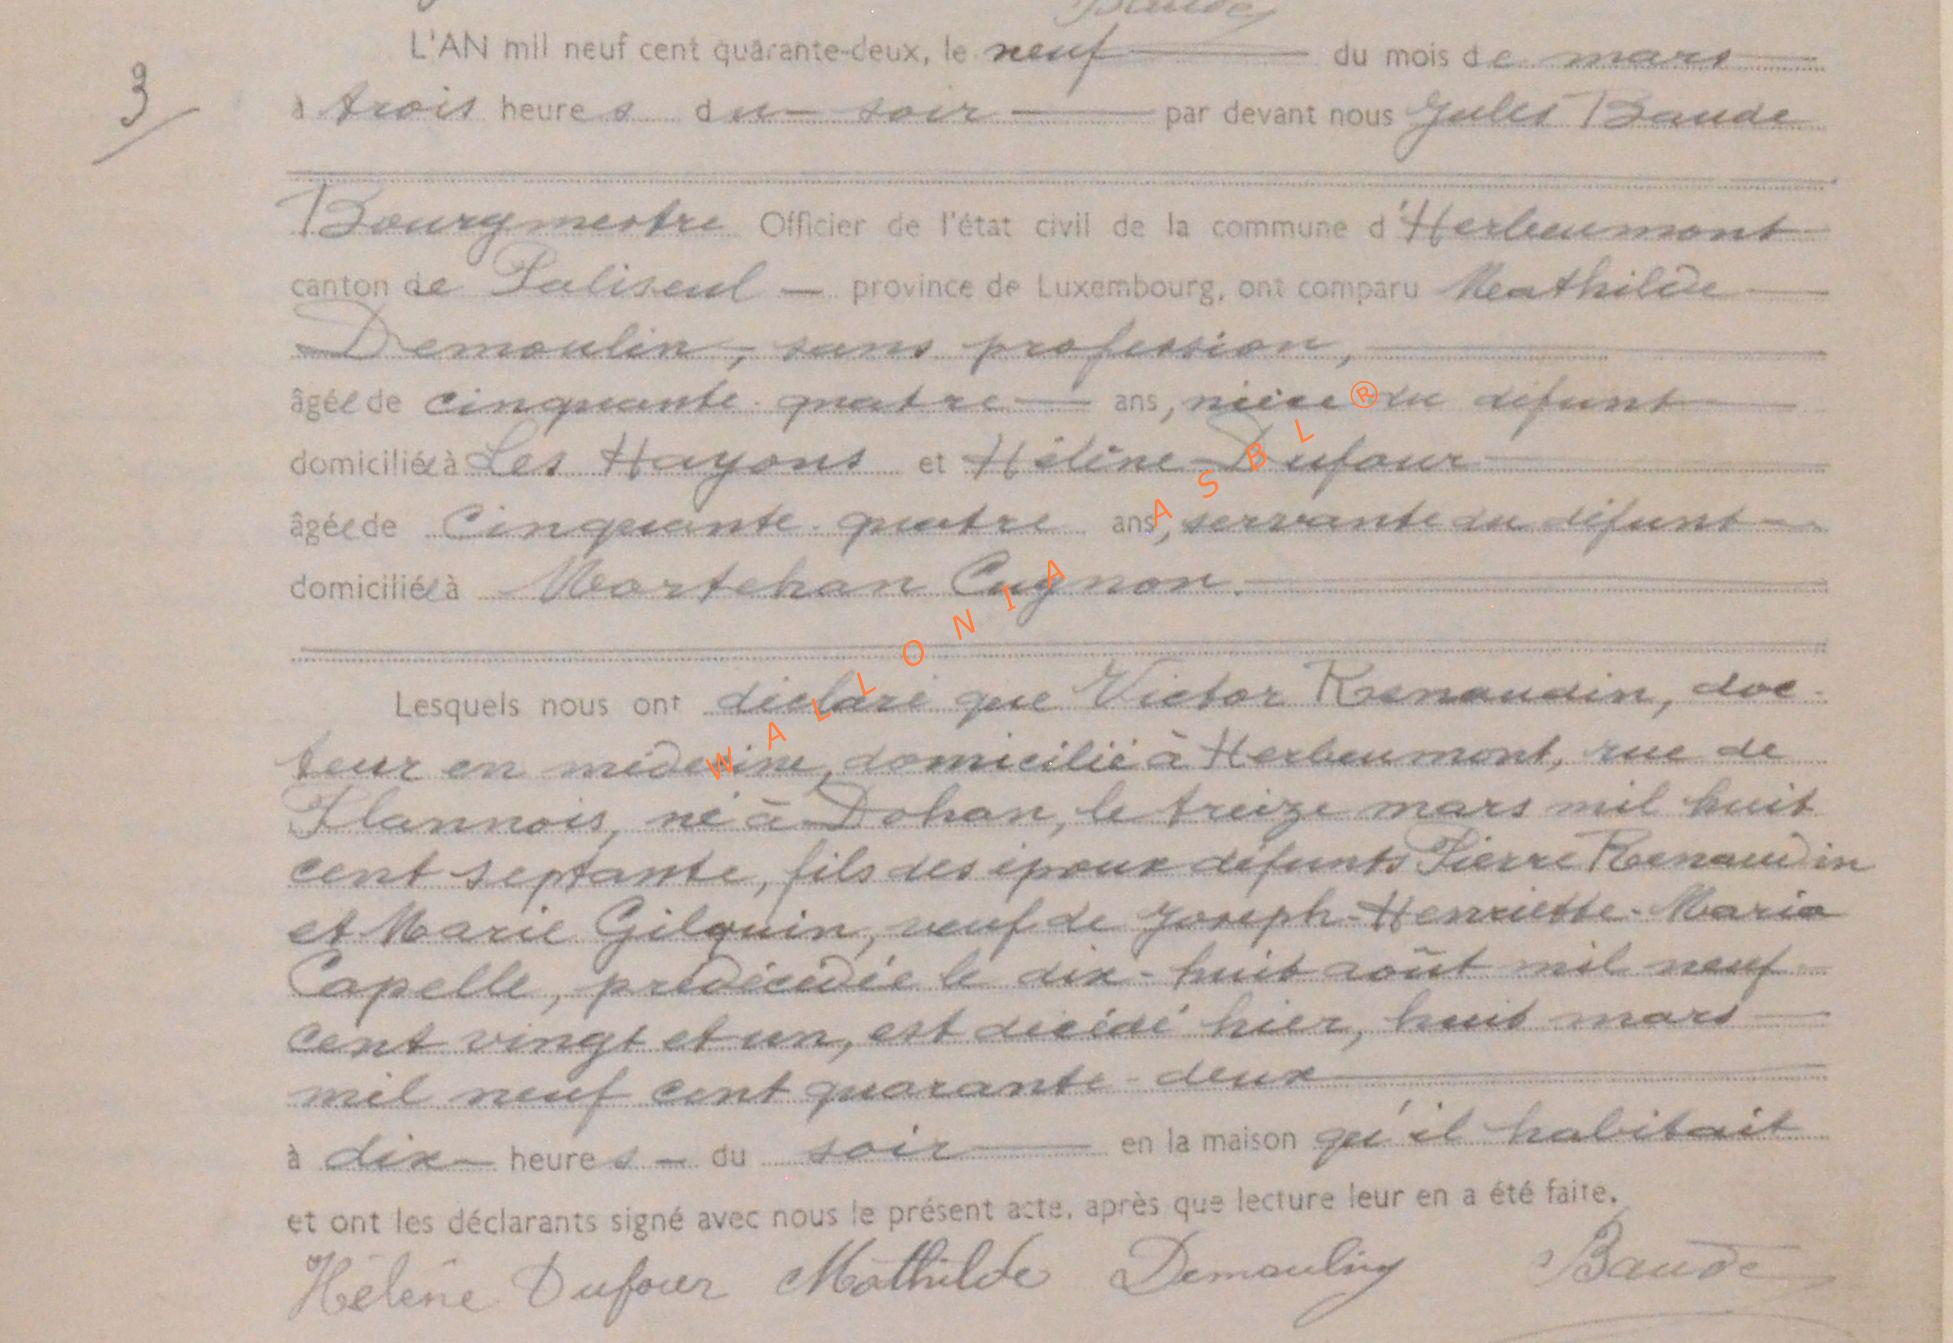 Baude
L'AN mil neuf cent quarante-deux, le neuf du mois de mars
3/
à trois heures du soir par devant nous Jules Baude
Bourgmestre Officier de l'état civil de la commune d'Herbeumont
canton de Paliseul — province de Luxembourg, ont comparu Mathilde
Demoulin, sans profession,
âgée de cinquante-quatre ans, nièce du défunt
domiciliée à Les Hayons et Hélène Dufour
âgée de cinquante-quatre ans, servante du défunt
domiciliée à Mortehan Cugnon.
Lesquels nous ont déclaré que Victor Renaudin, doc-
teur en médecine, domicilié à Herbeumont, rue de
Flannois, né à Dohan, le treize mars mil huit
cent septante, fils des époux défunts Pierre Renaudin
et Marie Gilquin, veuf de Joseph-Henriette-Maria
Capelle, prédécédée le dix-huit août mil neuf
cent vingt et un, est décédé hier, huit mars
mil neuf cent quarante-deux
à dix heures du soir en la maison qu'il habitait
et ont les déclarants signé avec nous le présent acte, après que lecture leur en a été faite.
Hélène Dufour Mathilde Demoulin Baude
WALLONIA ASBL®